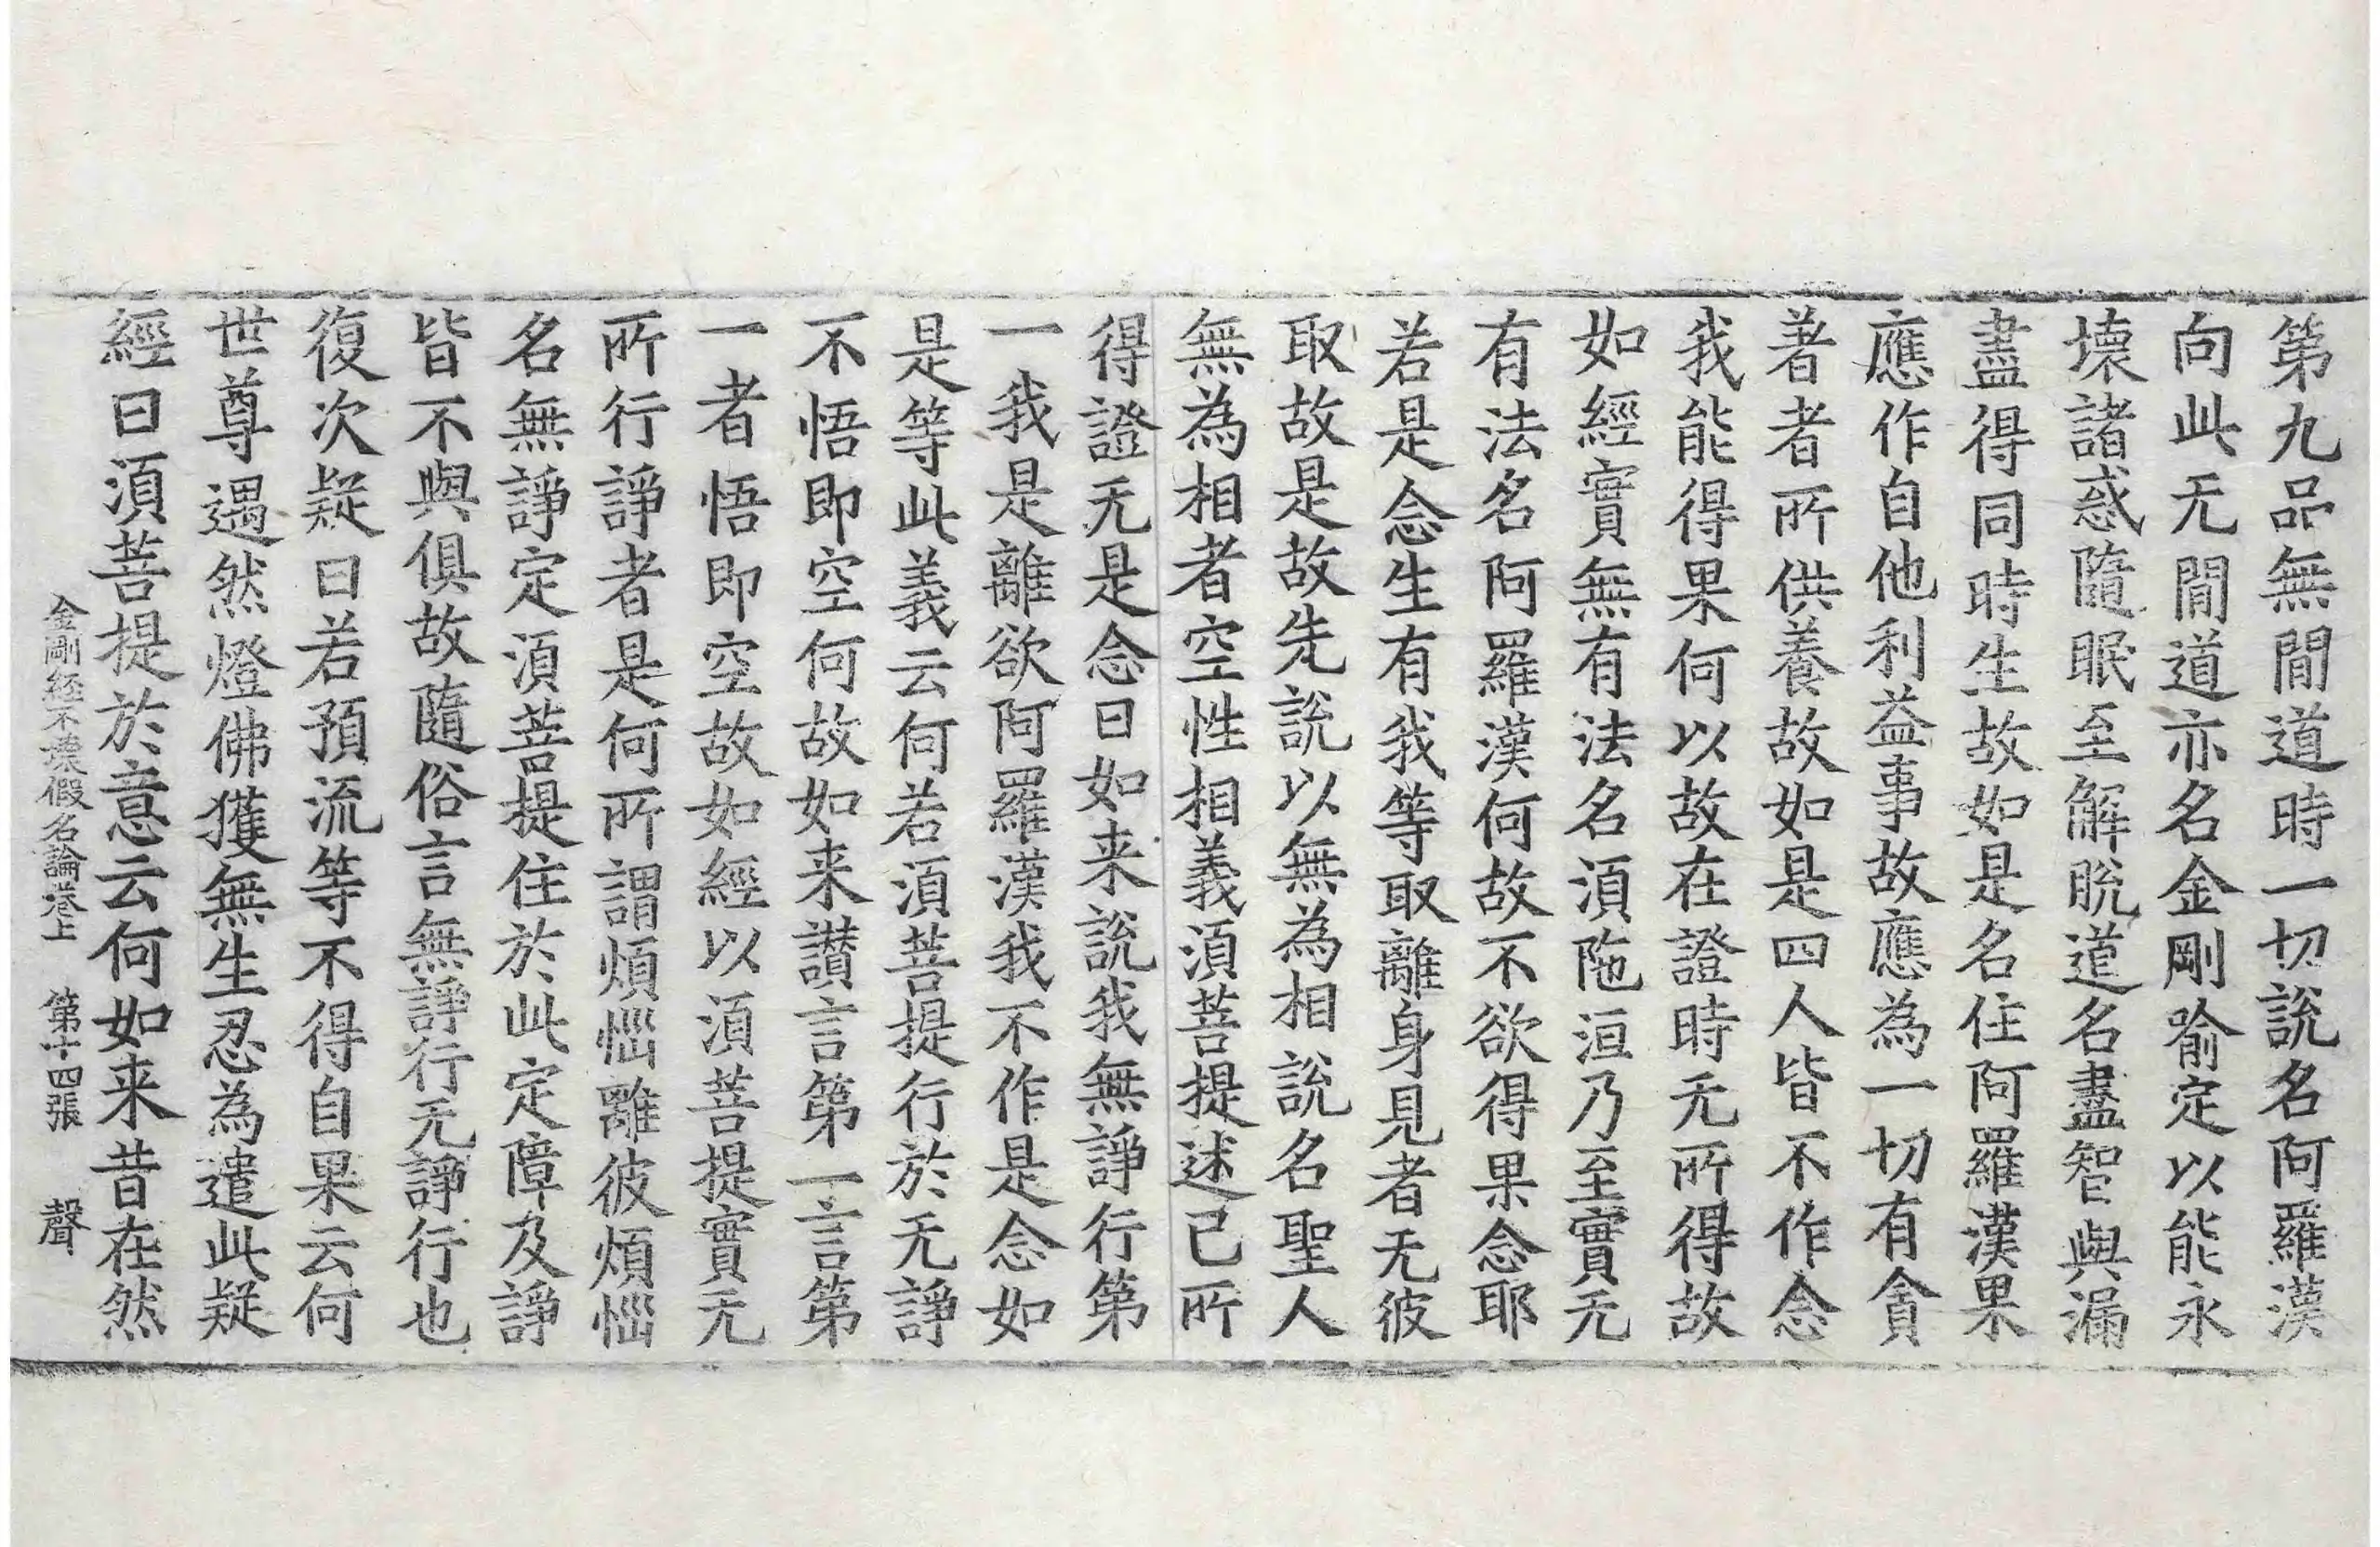 第九品無閒道時一切說名阿羅漢
向此无閒道亦名金剛喻定以能永
壞諸惑隨眠至解脫道名盡智與漏
盡得同時生故如是名住阿羅漢果
應作自他利益事故應為一切有貪
著者所供養故如是四人皆不作念
我能得果何以故在證時无所得故
如經實無有法名湏陁洹乃至實无
有法名阿羅漢何故不欲得果念耶
若是念生有我等取離身見者无彼
取故是故先說以無為相說名聖人
無為相者空性相義湏菩提述已所
得證无是念曰如来說我無諍行第
一我是離欲阿羅漢我不作是念如
是等此義云何若湏菩提行於无諍
不悟即空何故如来讃言第一言第
一者悟即空故如經以湏菩提實无
所行諍者是何所謂煩惱離彼煩惱
名無諍定湏菩提住於此定障及諍
皆不與俱故隨俗言無諍行无諍行也
復次疑曰若預流等不得自果云何
世尊遇然燈佛獲無生忍為遣此疑
經曰湏菩提於意云何如来昔在然
金剛經不壞假名論卷上　第十四張　聲